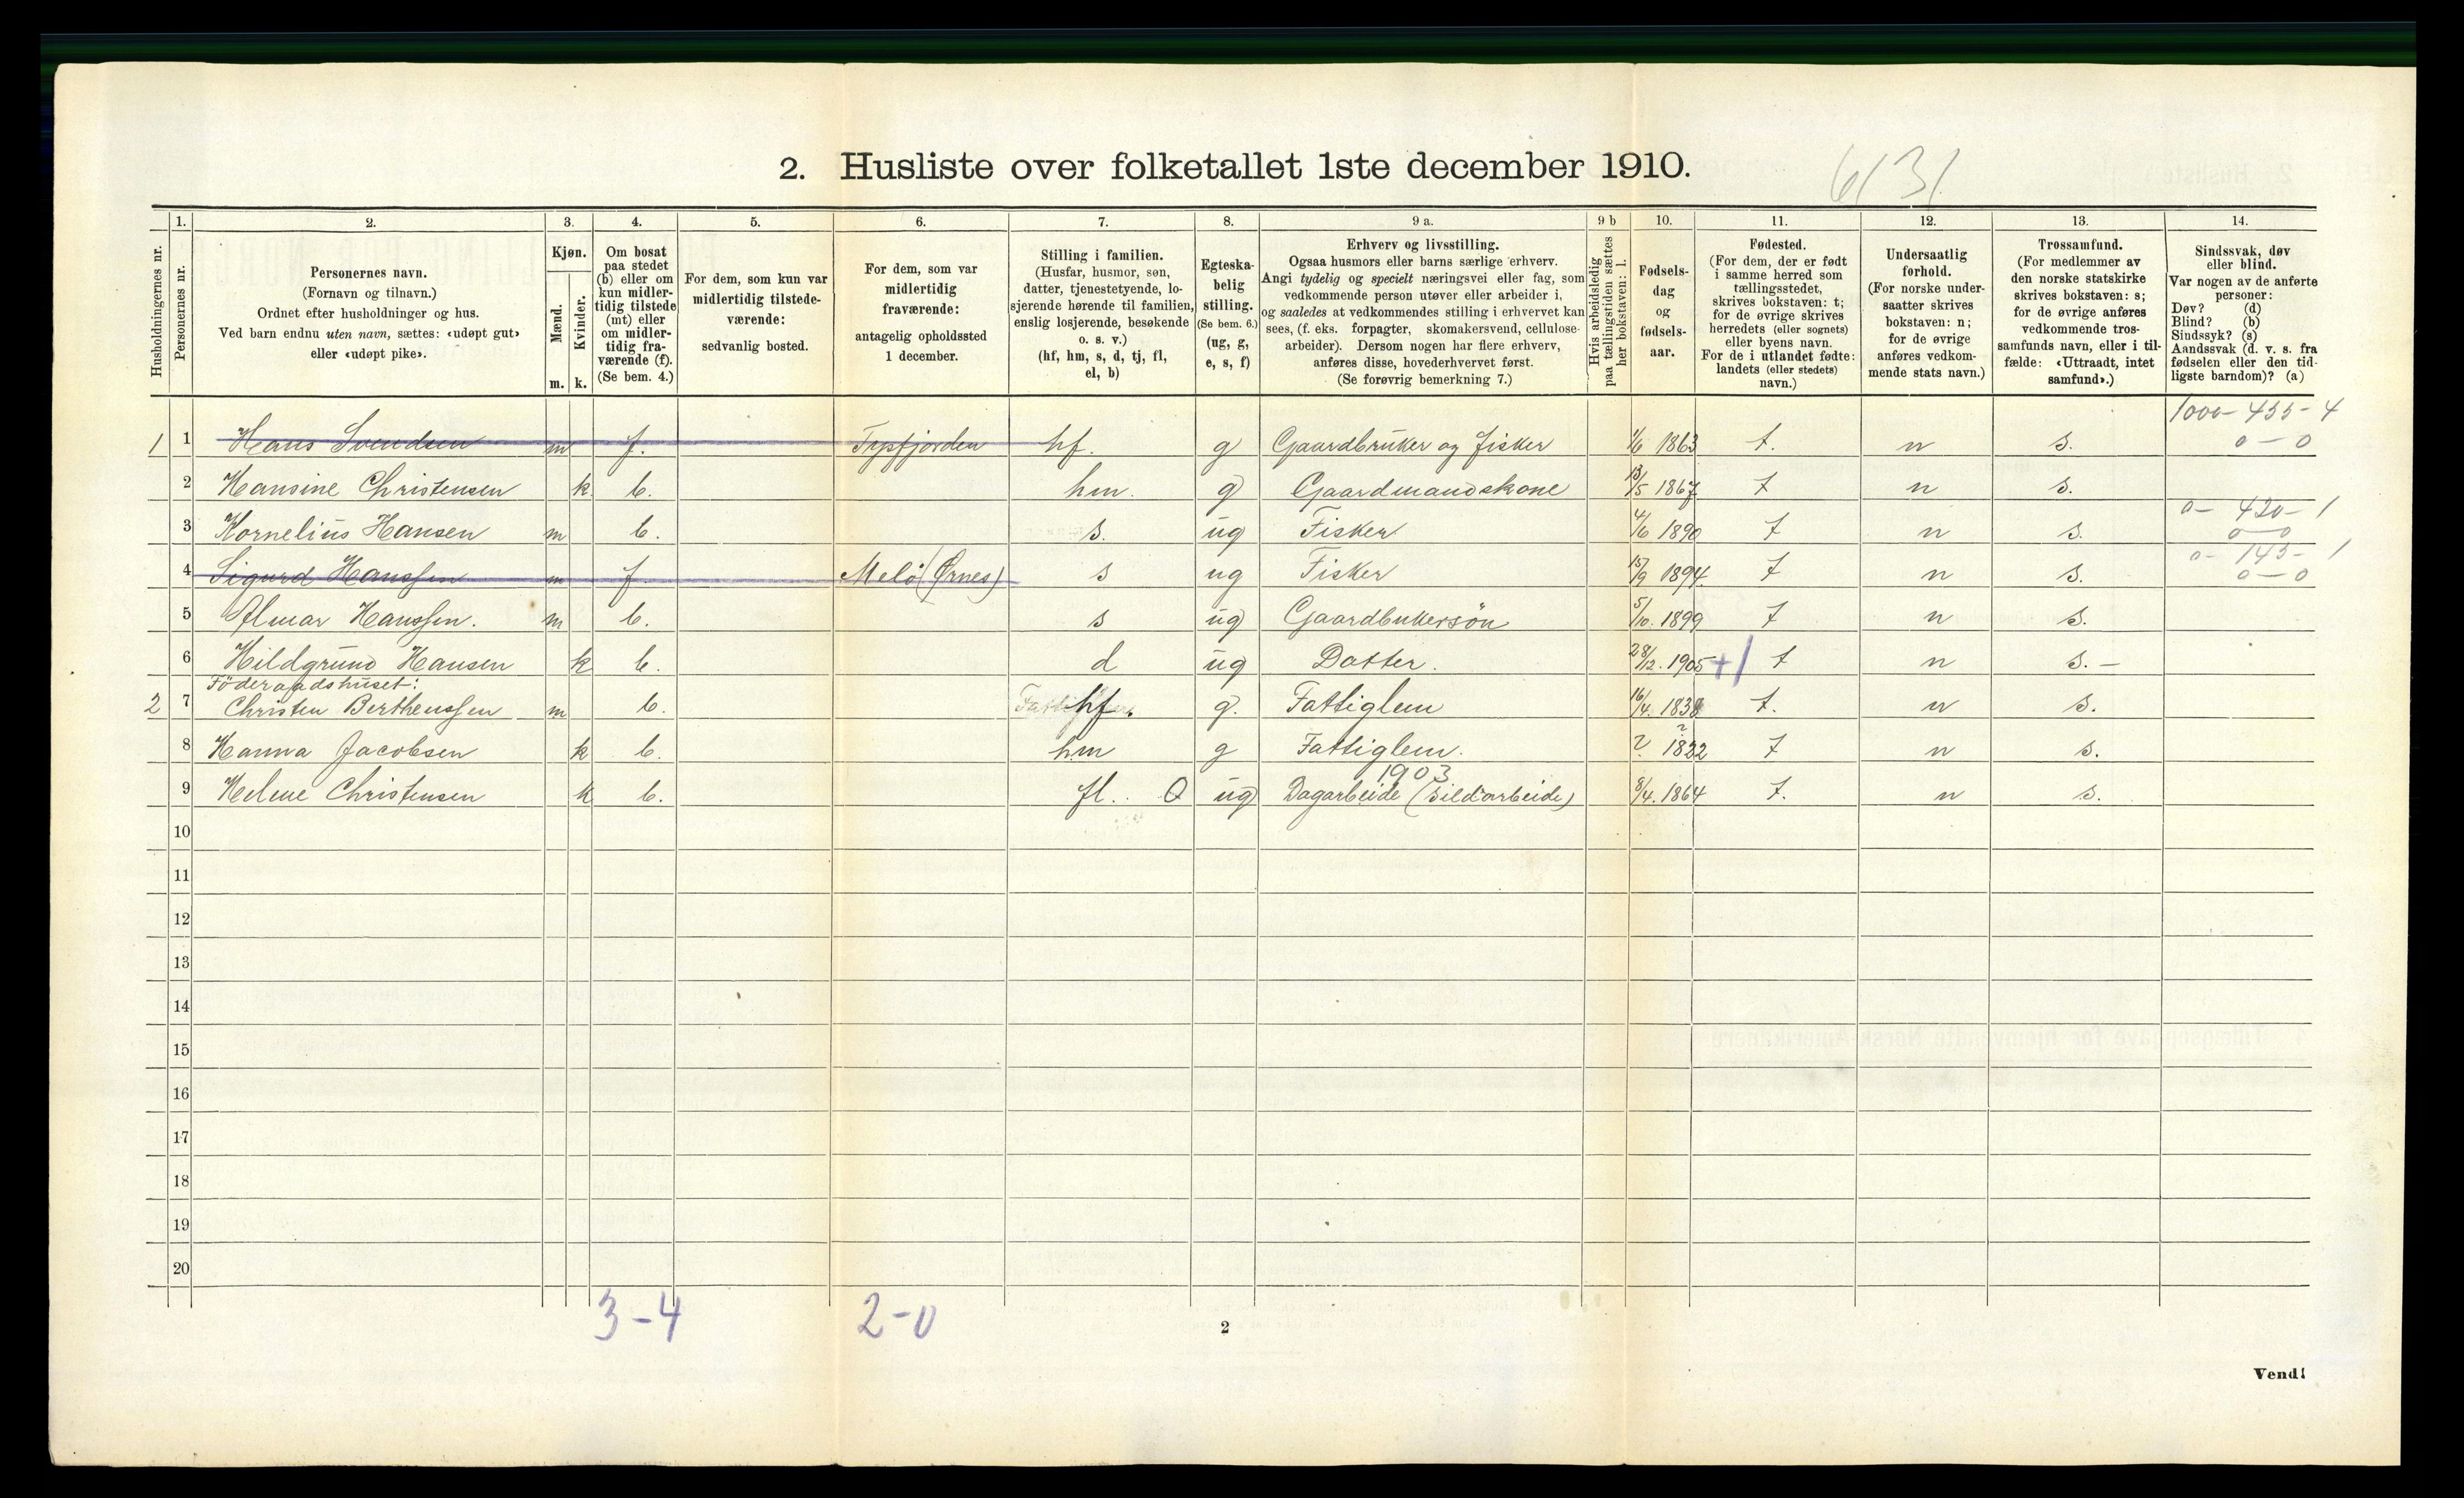 2. Husliste over folketallet 1ste december 1910.
6131
1. 2. 3. 4. 5. 6. 7. 8. 9 a. 9 b 10. 11. 12. 13. 14.
Husholdningernes nr.
Personernes nr.
Personernes navn.
(Fornavn og tilnavn.)
Ordnet efter husholdninger og hus.
Ved barn endnu uten navn, sættes: «udøpt gut»
eller «udøpt pike».
Kjøn.
Mænd.
Kvinder.
m. k.
Om bosat
paa stedet
(b) eller om
kun midler-
tidig tilstede
(mt) eller
om midler-
tidig fra-
værende (f).
(Se bem. 4.)
For dem, som kun var
midlertidig tilstede-
værende:
sedvanlig bosted.
For dem, som var
midlertidig
fraværende:
antagelig opholdssted
1 december.
Stilling i familien.
(Husfar, husmor, søn,
datter, tjenestetyende, lo-
sjerende hørende til familien,
enslig losjerende, besøkende
o. s. v.)
(hf, hm, s, d, tj, fl,
el, b)
Egteska-
belig
stilling.
(Se bem. 6.)
(ug, g,
e, s, f)
Erhverv og livsstilling.
Ogsaa husmors eller barns særlige erhverv.
Angi tydelig og specielt næringsvei eller fag, som
vedkommende person utøver eller arbeider i,
og saaledes at vedkommendes stilling i erhvervet kan
sees, (f. eks. forpagter, skomakersvend, cellulose-
arbeider). Dersom nogen har flere erhverv,
anføres disse, hovederhvervet først.
(Se forøvrig bemerkning 7.)
Hvis arbeidsledig
paa tællingstiden sættes
her bokstaven: l.
Fødsels-
dag
og
fødsels-
aar.
Fødested.
(For dem, der er født
i samme herred som
tællingsstedet,
skrives bokstaven: t;
for de øvrige skrives
herredets (eller sognets)
eller byens navn.
For de i utlandet fødte:
landets (eller stedets)
navn.)
Undersaatlig
forhold.
(For norske under-
saatter skrives
bokstaven: n;
for de øvrige
anføres vedkom-
mende stats navn.)
Trossamfund.
(For medlemmer av
den norske statskirke
skrives bokstaven: s;
for de øvrige anføres
vedkommende tros-
samfunds navn, eller i til-
fælde: «Uttraadt, intet
samfund».)
Sindssvak, døv
eller blind.
Var nogen av de anførte
personer:
Døv? (d)
Blind? (b)
Sindssyk? (s)
Aandssvak (d. v. s. fra
fødselen eller den tid-
ligste barndom)? (a)
1000 - 455 - 4
1 1 Hans Svendsen m f. Tysfjorden hf. g Gaardbruker og Fisker 1/6 1863 t. n s. 0 - 0
2 Hansine Christensen k. b. hm. g Gaardmandskone 13/5 1867 t n s.
0 - 420 - 1
3 Kornelius Hansen m b. s. ug Fisker 4/6 1890 t n s. 0 - 0
0 - 145 - 1
4 Sigurd Hanssen m f Melö (Ørnes) s ug Fisker 15/9 1894 t n s. 0 - 0
5 Almar Hanssen. m b. s ug Gaardbukersön 5/10. 1899 t n s.
6 Hildgrund Hansen k b. d ug Datter. 28/12. 1905 +1 t n s. -
Föderaadshuset:
2 7 Christen Berthenssen m b. hf. g. Fattiglem 16/4. 1838 t. n s.
8 Hanna Jacobsen k b. hm g Fattiglem. ? 1832 t n s.
1903
9 Helene Christensen k b. fl. O ug Dagarbeide (Sildarbeide) 8/4. 1864 t. n s.
10
11
12
13
14
15
16
17
18
19
20
3 - 4 2 - 0
2
Vend!